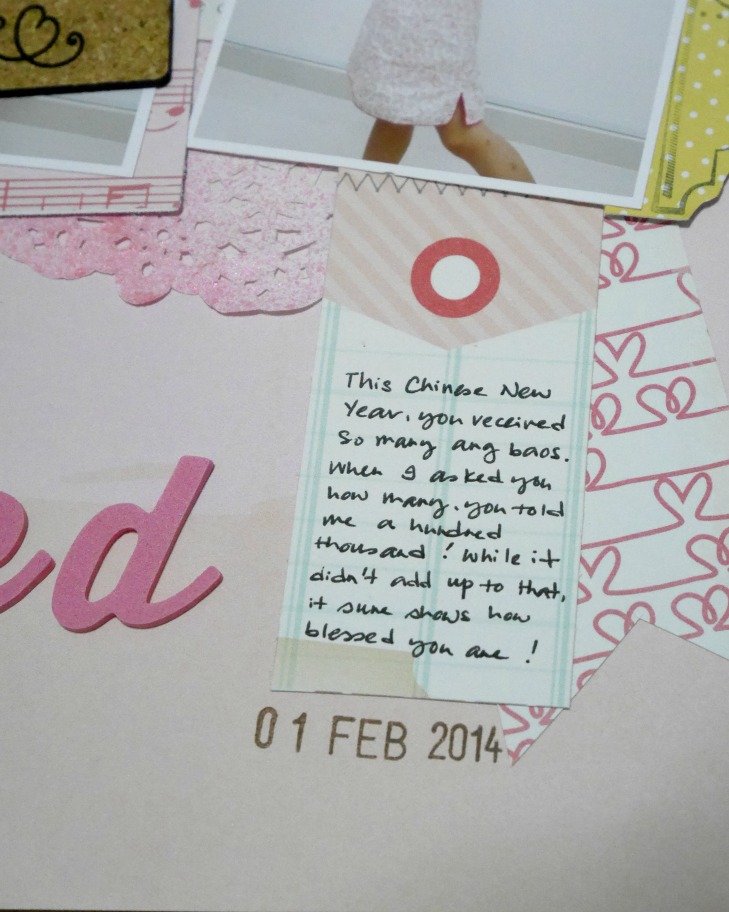 ed
This Chinese New
Year, you received
so many ang baos.
When I asked you
how many, you told
me a hundred
thousand! While it
didn't add up to that,
it sure shows how
blessed you are!
01 FEB 2014